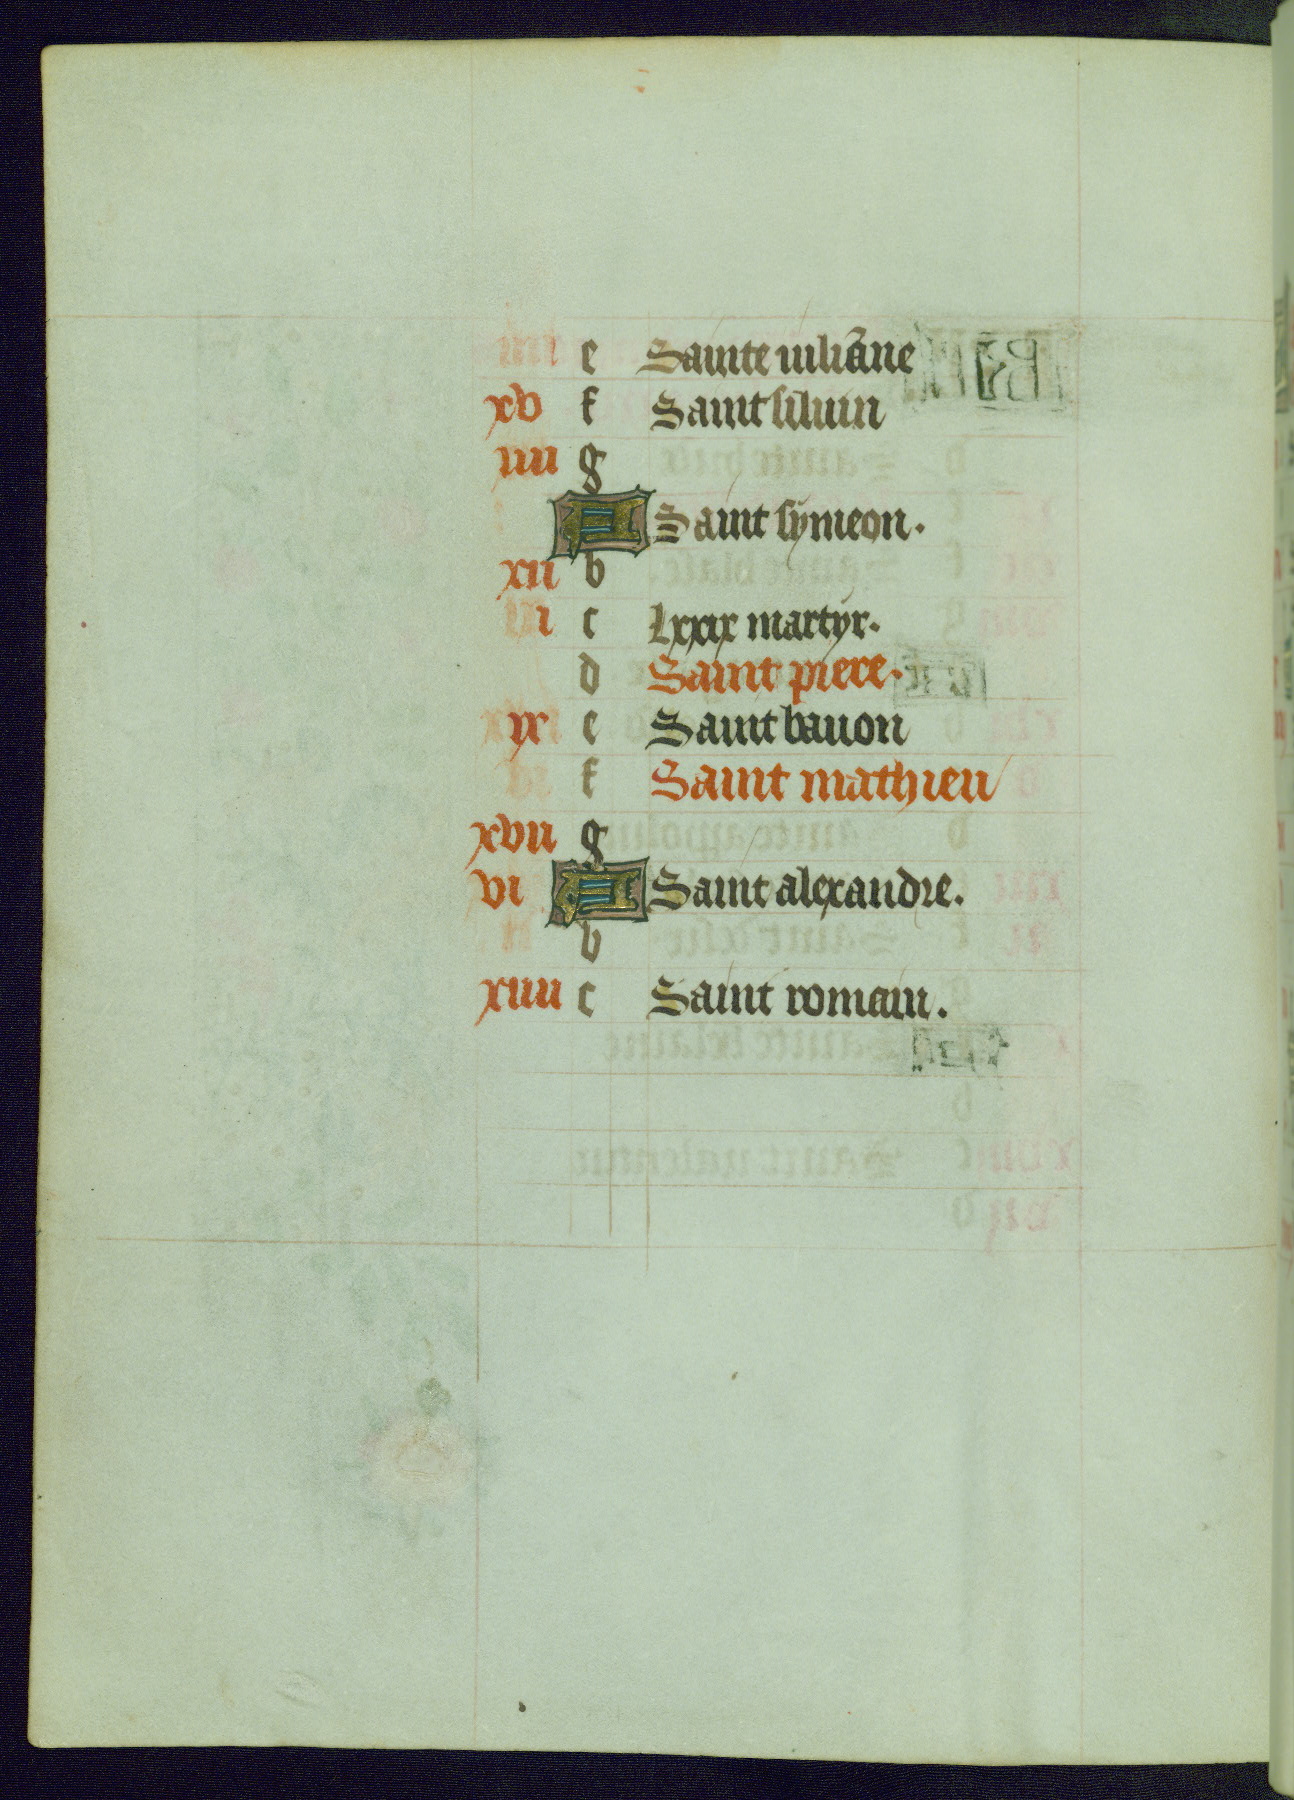 e Sainte iuliãne
xv f Saint siluin
iiii g
A Saint symeon.
xii b
i c Lxxix martyr.
d Saint piere.
ix e Saint bauon
f Saint mathieu
xvii g
vi A Saint alexandre.
b
xiiii c Saint romain.